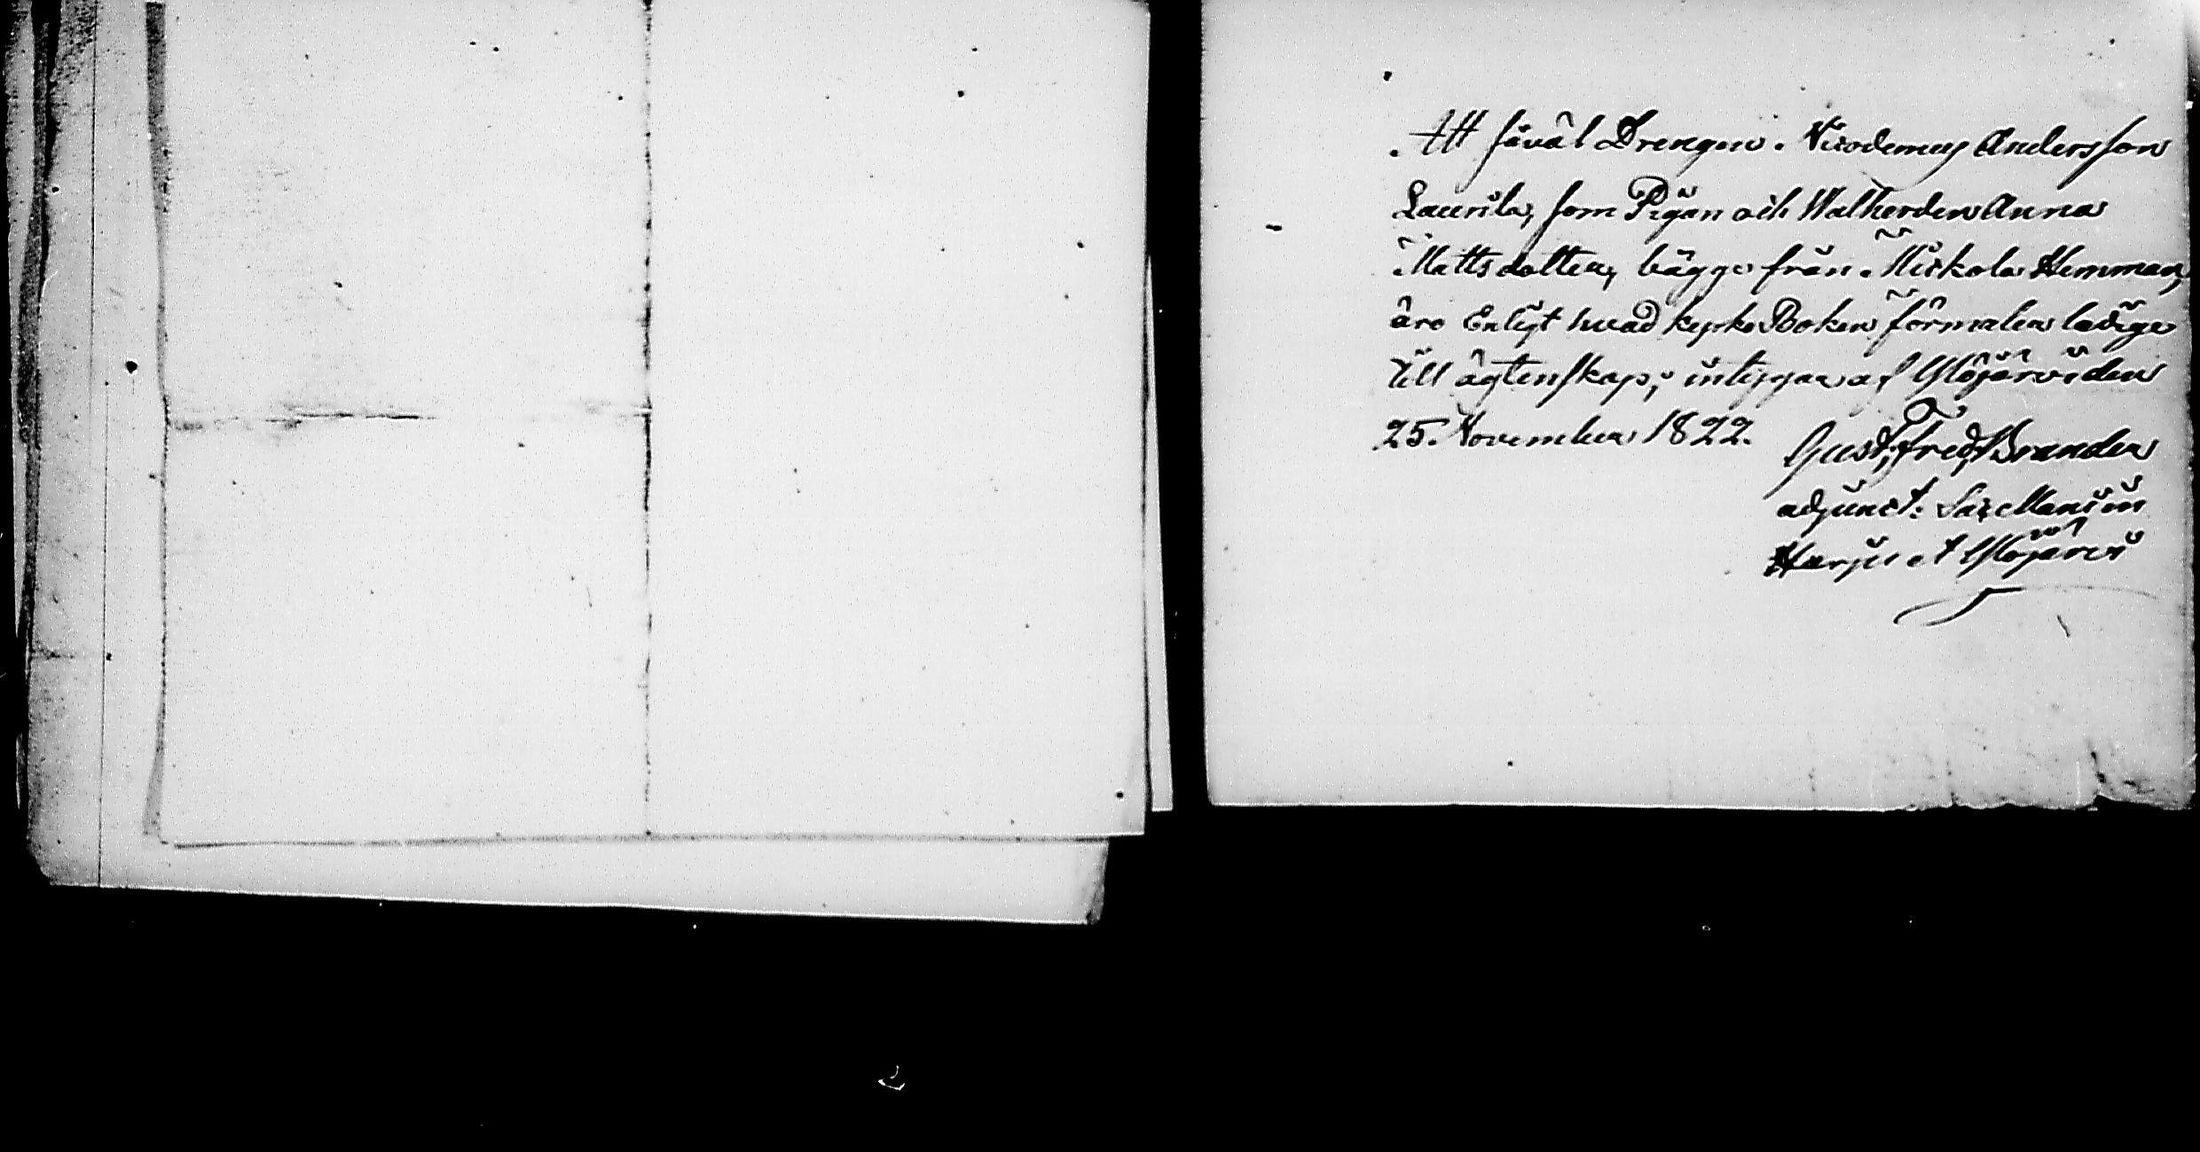 Att såväl Drengen Nicodemus Andersson
Laurila, som Pigan och Walherden Anna
Mattsdotter, bägge från Mickola Hemman,
äro Enligt hvad kyrko Boken förmäler ledige
till ägtenskap; intygar af Ylöjärvi den
25. November 1822.
Gust. Fred. Brander
adjunct: Sacellani in
Harju et Ylöjärvi